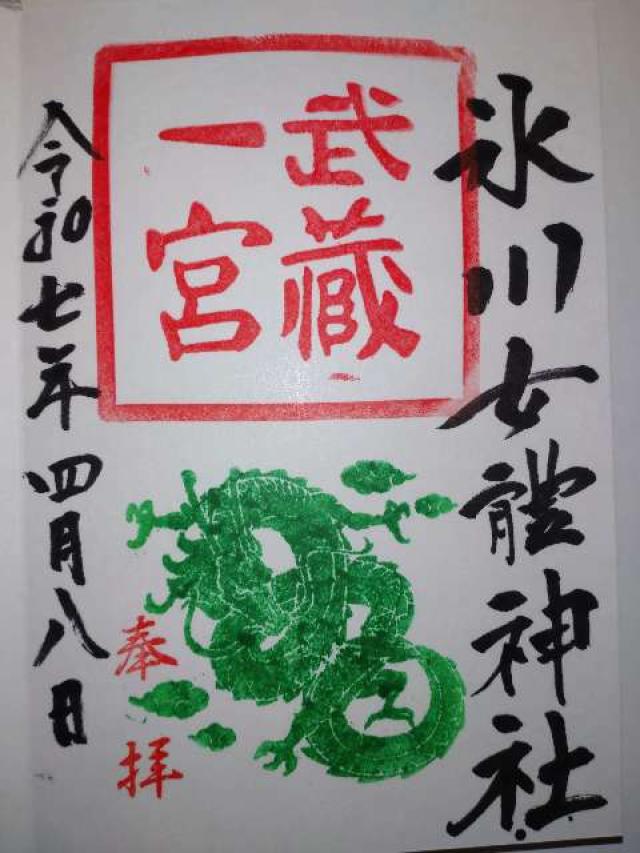 氷川女體神社
武蔵
一宮
奉拝
令和七年四月八日